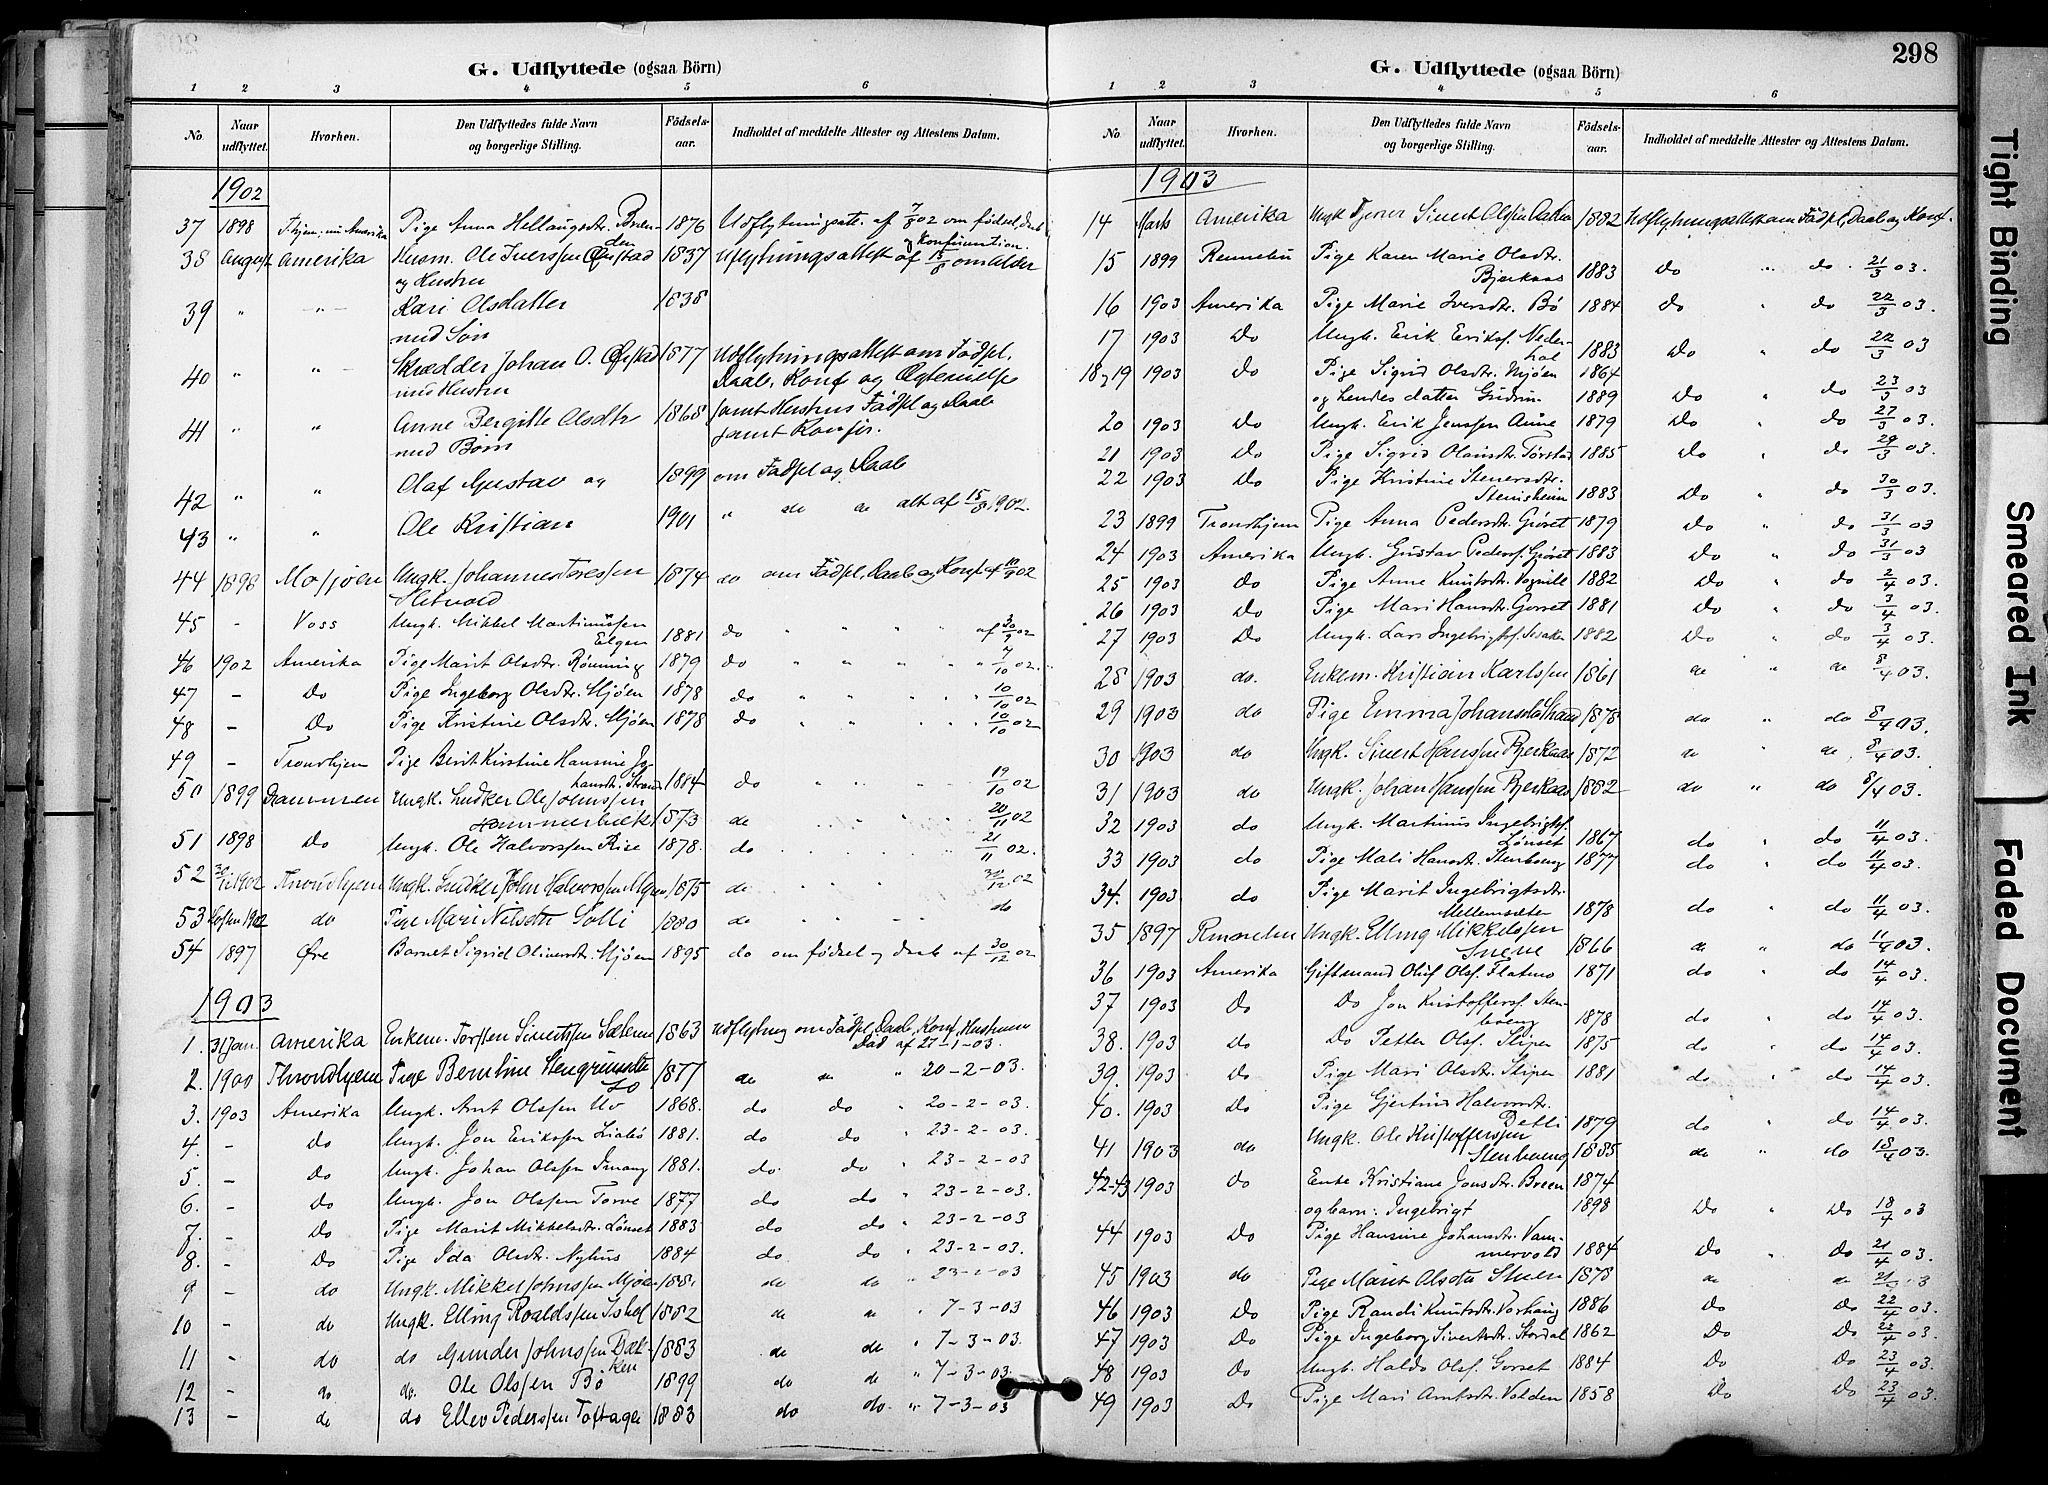 G. Udflyttede (ogsaa Börn)
1 2 3 4 5 6
No. Naar udflyttet. Hvorhen. Den Udflyttedes fulde Navn og borgerlige Stilling. Födsels-aar. Indholdet af meddelte Attester og Attestens Datum.
1902
37 1898 Amerika Pige Anna 1876 af 7/8 02 om födsel, daab
og Konfirmation.
38 August Amerika Husm. Ole Iverssen 1837 Uflytningsattest af 15/8 om Alder
og Hustru
39 " " Kari Olsdatter 1838
med Søn
40 " " Skrædder Johan O. 1877 Udflytningsattest om Fødsel,
med Hustru Daab, Konf og
41 " " Anne Bergitte Olsdtr 1868 samt Hustrus Fødsl og Daab
med Børn samt Konfir.
42 " " Olaf Gustav og 1899 om Fødsl og Daab
43 " " Ole Kristian 1901 " do do alt af 15/8 1902.
44 1898 Mosjøen Ungk. Johannes Toressen 1874 do om Fødsl, Daab og Konf
45 - Voss Ungk. Mikkel Martinussen
Elgen 1881 do " " " af 30/9 02
46 1902 Amerika Pige Marit Olsdtr. Rönning 1879 do " " " " 7/10 02.
47 - Do Pige Ingeborg Olsdtr. Mjöen 1878 do " " " " 10/10 02
48 - Do Pige Kristine Olsdtr. Mjöen 1878 do " " " " 10/10 02
49 - Trondhjem Pige Berit Kirstine Hansine Jo-
hansdtr. Strand 1884 do " " " 19/10 02
50 1899 Drammen Ungk. Snedker Ole Johnssen
Hammerbæk 1873 do " " " 20/11 02
51 1898 Do Ungk. Ole Halvorssen Rise 1878. do " " " 21/11 02.
52 1902 Throndhjem Ungk. Snedker John Halvorssen 1875 do " " "
53 1902 do Pige Mari Nilsdtr Solli 1880 do " - - do
54 1897 Øre Barnet Sigrid Oliversdtr. Mjöen 1895 do om födsel og daab af 30/12 02
1903
1. 31 Jan. Amerika Enkem. Torsten Sivertssen 1863 Udflytning om Fødsl, Daab, Konf, Hustruens
Död af 27-1-03.
2. 1900 Throndhjem Pige 1877 do do " 20-2-03.
3. 1903 Amerika Ungk. Arnt Olssen Uv 1868. do do " 20-2-03.
4. - Do Ungk. Jon Erikssen Liabö 1881. do do " 23-2-03.
5. - Do Ungk. Johan Olssen 1881. do. do " 23-2-03.
6. - Do Ungk. Jon Olssen Torve 1877 do do " 23-2-03.
7. - Do Pige Marit Mikkelsdtr. Lönset 1883 do do " 23-2-03
8. - Do Pige Ida Olsdtr. Nyhus 1884 do do " 23-2-03.
9 - do Ungk. Mikkel Johnssen Mjöen 1881 do do " 23-2-03
10 - do Ungk. Elling Roaldssen Ishol 1882 do " " 7-3-03
11 - do do Gunder Johnssen Bæk-
ken 1883 do do " 7-3-03.
12 - do do. Ole Olssen Bö 1899 do do " 7-3-03.
13 - do do Ellev Pederssen Toftager 1883 do do. " 7-3-03
298
G. Udflyttede (ogsaa Börn)
1 2 3 4 5 6
No Naar udflyttet. Hvorhen. Den Udflyttedes fulde Navn og borgerlige Stilling. Födsels-aar. Indholdet af meddelte Attester og Attestens Datum.
1903
14 Marts Amerika Ungk Sivert Olssen 1882 Udflytningsattest om Fødsl, Daab og Konf.
15 1899 Rennebu Pige Karen Marie Olsdtr.
Bjerkaas 1883 do " do . 21/3 03.
16 1903 Amerika Pige Marie Iversdtr. Bö 1884 do " do 22/3 03
17 1903 Do Ungk. Erik Eriks. Neder-
hol 1883 Do " do 22/3 03
18 og 19 1903 do Pige Sigrid Olsdtr. Mjöen 1864
og hendes datter Gudrun 1889 Do " do 23/3 03
20 1903 Do Ungk. Erik Jenssen Aune 1879 Do " do 27/3 03
21 1903 Do Pige Sigrid Tørstad 1885 Do do 29/3 03.
22 1903 Do Pige Kristine Stenersdtr.
Stensheim 1883 Do " do 30/3 03.
23 1899 Trondhjem Pige Anna Pedersdtr. Gröset 1879 Do " do 31/3 03
24 1903 Amerika Ungk. Gustav Peders. Gröset 1883 Do " do 31/3 03
25 1903 Do Pige Anne Knutsdtr. Vognild 1882 Do " do 2/4 03.
26 1903 Do Pige Mari Hansdtr. Gorset 1881 Do " do 3/4 03.
27 1903 Do Ungk. Lars Ingebrigts. 1882 Do " do 3/4 03.
28 1903 do. Enkem. Kristian Karlssen 1861 do " do 8/4 03.
29 1903 do Pige Emma Johansdtr Strand 1878 do " do 8/4 03.
30 1903 do Ungk. Sivert Hanssen Bjerkaas 1872 do do 8/4 03.
31 1903 do Ungk. Johan Hanssen Bjerkaas 1882 do " do 8/4 03.
32 1903 do Ungk. Martinus Ingebrigts.
Lönset 1867 do " do 11/4 03.
33 1903 do Pige Mali Hansdtr. Stenboeng 1877 do do 11/4 03.
34. 1903 do Pige Marit Ingebrigtsdtr.
Mellemsæter 1878 do " do 11/4 03.
35 1897 Ungk. Elling Mikkelssen
1866 do " do 11/4 03.
36 1903 Amerika Giftmand Oluf Ols. Flatmo 1871 do " do 14/4 03.
37 1903 Do Do Jon Kristoffers. Sten-
boeng 1878 do " do 14/4 03.
38. 1903 Do Do Petter Ols. Stipen 1875 do " do 14/4 03.
39. 1903 Do Pige Mari Olsdtr. Stipen 1881 do " do 14/4 03.
40. 1903 Do Pige Gjertrud Halvorsdtr.
Detli 1879 do " do 14/4 03.
41 1903 do Ungk. Ole Kristofferssen
Stenboeng 1885 do " do 18/4 03.
42-43 1903 do Enke Kristiane Jonsdtr. Breen 1874
og barn: Ingebrigt 1898 Do " Do 18/4 03
44 1903 Do Pige Hansine Johansdtr. Vam-
mervold 1884 Do " do 21/4 03.
45 1903 do Pige Marit Olsdtr Stuen 1878 do " do 21/4 03
46 1903 Do Pige Randi Knutsdtr. Vorhaug 1886 Do " Do 22/4 03.
47 1903 Do Pige Ingeborg Sivertsdtr. Stordal 1862 Do " Do 22/4 03.
48 1903 Do Ungk. Haldo Ols. Gorset 1884 Do " Do 23/4 03.
49 1903 Do Pige Mari Arntsdtr. Volden 1858 Do " Do 23/4 03.
Tight Binding
Smeared Ink
Faded Document